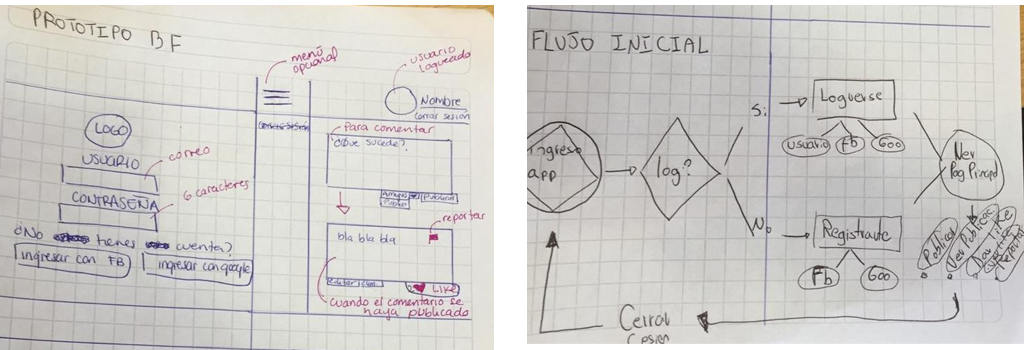 PROTOTIPO BF
LOGO
USUARIO
correo
CONTRASEÑA
6 caracteres
¿No tienes cuenta?
ingresar con FB
ingresar con google
menú
opcional
usuario
logueado
Nombre
Cerrar sesión
Para comentar
¿Que sucede?
Publicar
reportar
bla bla bla
Like
cuando el comentario se
haya publicado
FLUJO INICIAL
Ingreso
app
log?
Si
Loguerse
Usuario
Fb
Goo
No
Registrarte
Fb
Goo
Ver
Pag Principal
Publicar
Ver Publicac
Dar Like
Reportar
Cerrar
Cesion